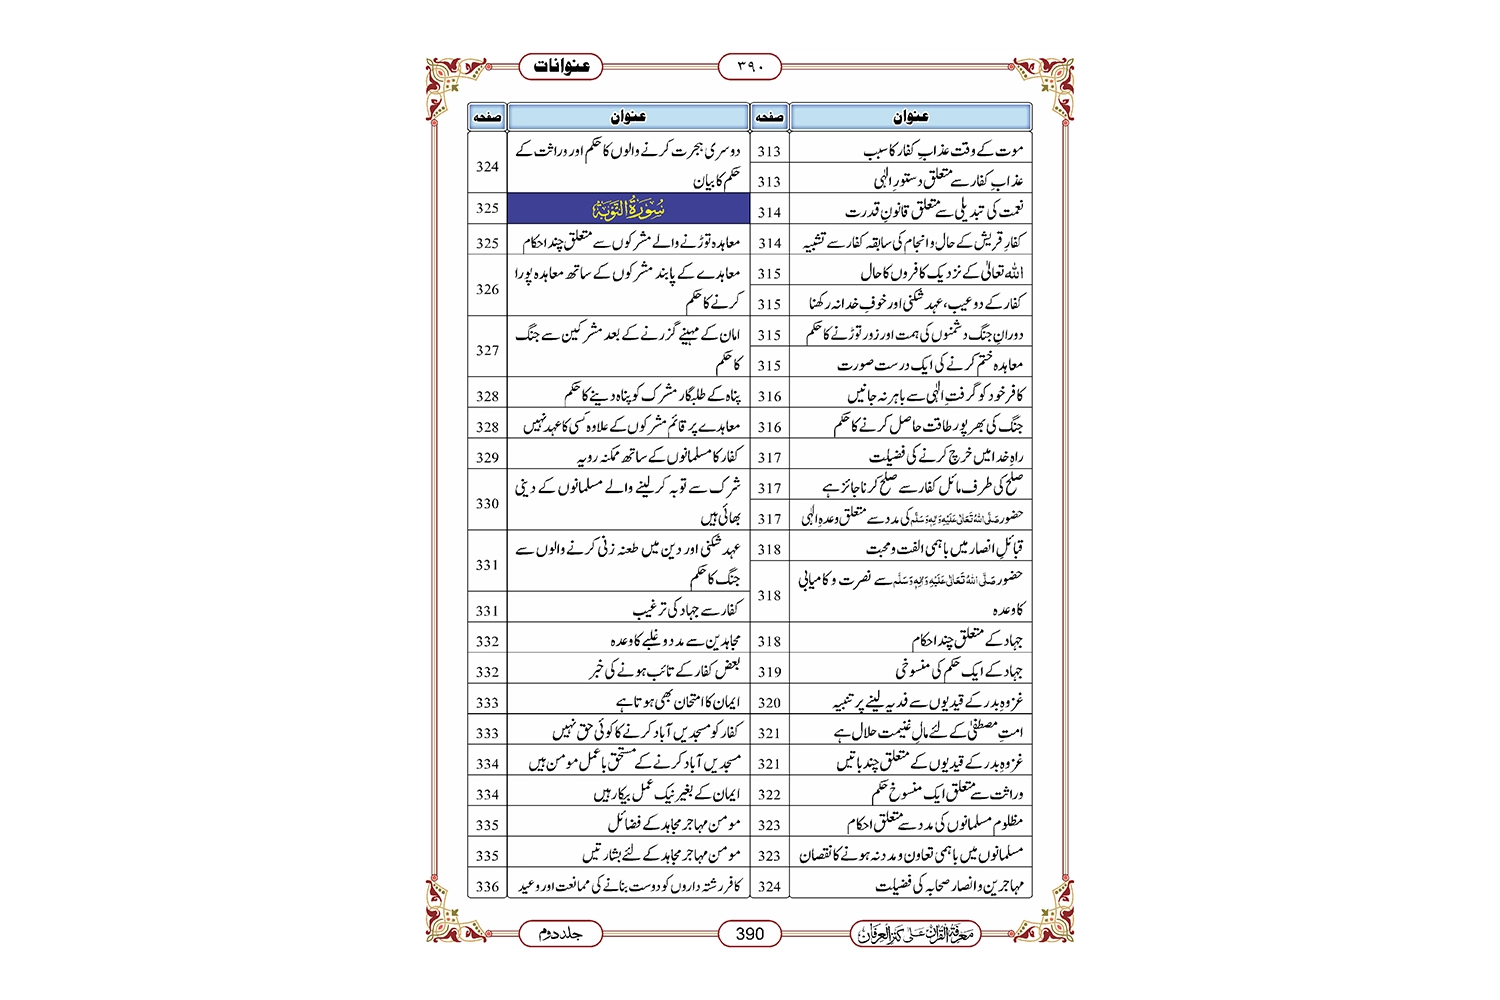 عنوانات
۳۹۰
عنوان صفحه
موت کے وقت عذابِ کفار کا سبب 313
عذابِ کفار سے متعلق دستورِ الٰہی 313
نعمت کی تبدیلی سے متعلق قانونِ قدرت 314
کفارِ قریش کے حال و انجام کی سابقہ کفار سے تشبیہ 314
اللہ تعالیٰ کے نزدیک کافروں کا حال 315
کفار کے دو عیب، عہد شکنی اور خوفِ خدا نہ رکھنا 315
دورانِ جنگ دشمنوں کی ہمت اور زور توڑنے کا حکم 315
معاہدہ ختم کرنے کی ایک درست صورت 315
کافر خود کو گرفتِ الٰہی سے باہر نہ جانیں 316
جنگ کی بھرپور طاقت حاصل کرنے کا حکم 316
راہِ خدا میں خرچ کرنے کی فضیلت 317
صلح کی طرف مائل کفار سے صلح کرنا جائز ہے 317
حضور صَلَّی اللہُ تَعَالٰی عَلَیْہِ وَاٰلِہٖ وَسَلَّم کی مدد سے متعلق وعدہِ الٰہی 317
قبائلِ انصار میں باہمی الفت و محبت 318
حضور صَلَّی اللہُ تَعَالٰی عَلَیْہِ وَاٰلِہٖ وَسَلَّم سے نصرت و کامیابی
کا وعدہ 318
جہاد کے متعلق چند احکام 318
جہاد کے ایک حکم کی منسوخی 319
غزوہ بدر کے قیدیوں سے فدیہ لینے پر تنبیہ 320
امتِ مصطفیٰ کے لئے مالِ غنیمت حلال ہے 321
غزوہ بدر کے قیدیوں کے متعلق چند باتیں 321
وراثت سے متعلق ایک منسوخ حکم 322
مظلوم مسلمانوں کی مدد سے متعلق احکام 323
مسلمانوں میں باہمی تعاون و مدد نہ ہونے کا نقصان 323
مہاجرین و انصار صحابہ کی فضیلت 324
عنوان صفحه
دوسری ہجرت کرنے والوں کا حکم اور وراثت کے
حکم کا بیان 324
سُوْرَةُ التَّوْبَة 325
معاہدہ توڑنے والے مشرکوں سے متعلق چند احکام 325
معاہدے کے پابند مشرکوں کے ساتھ معاہدہ پورا
کرنے کا حکم 326
امان کے مہینے گزرنے کے بعد مشرکین سے جنگ
کا حکم 327
پناہ کے طلبگار مشرک کو پناہ دینے کا حکم 328
معاہدے پر قائم مشرکوں کے علاوہ کسی کا عہد نہیں 328
کفار کا مسلمانوں کے ساتھ ممکنہ رویہ 329
شرک سے توبہ کر لینے والے مسلمانوں کے دینی
بھائی ہیں 330
عہد شکنی اور دین میں طعنہ زنی کرنے والوں سے
جنگ کا حکم 331
کفار سے جہاد کی ترغیب 331
مجاہدین سے مدد و غلبے کا وعدہ 332
بعض کفار کے تائب ہونے کی خبر 332
ایمان کا امتحان بھی ہوتا ہے 333
کفار کو مسجدیں آباد کرنے کا کوئی حق نہیں 333
مسجدیں آباد کرنے کے مستحق باعمل مومن ہیں 334
ایمان کے بغیر نیک عمل بیکار ہیں 334
مومن مہاجر مجاہد کے فضائل 335
مومن مہاجر مجاہد کے لئے بشارتیں 335
کافر رشتہ داروں کو دوست بنانے کی ممانعت اور وعید 336
معرفۃ القرآن علٰی کنز العرفان
390
جلد دوم